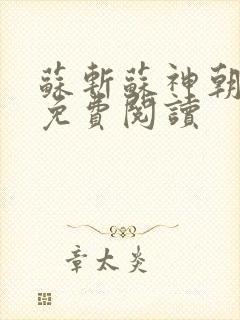 蘇斬蘇神朝
免費閱讀
章太炎